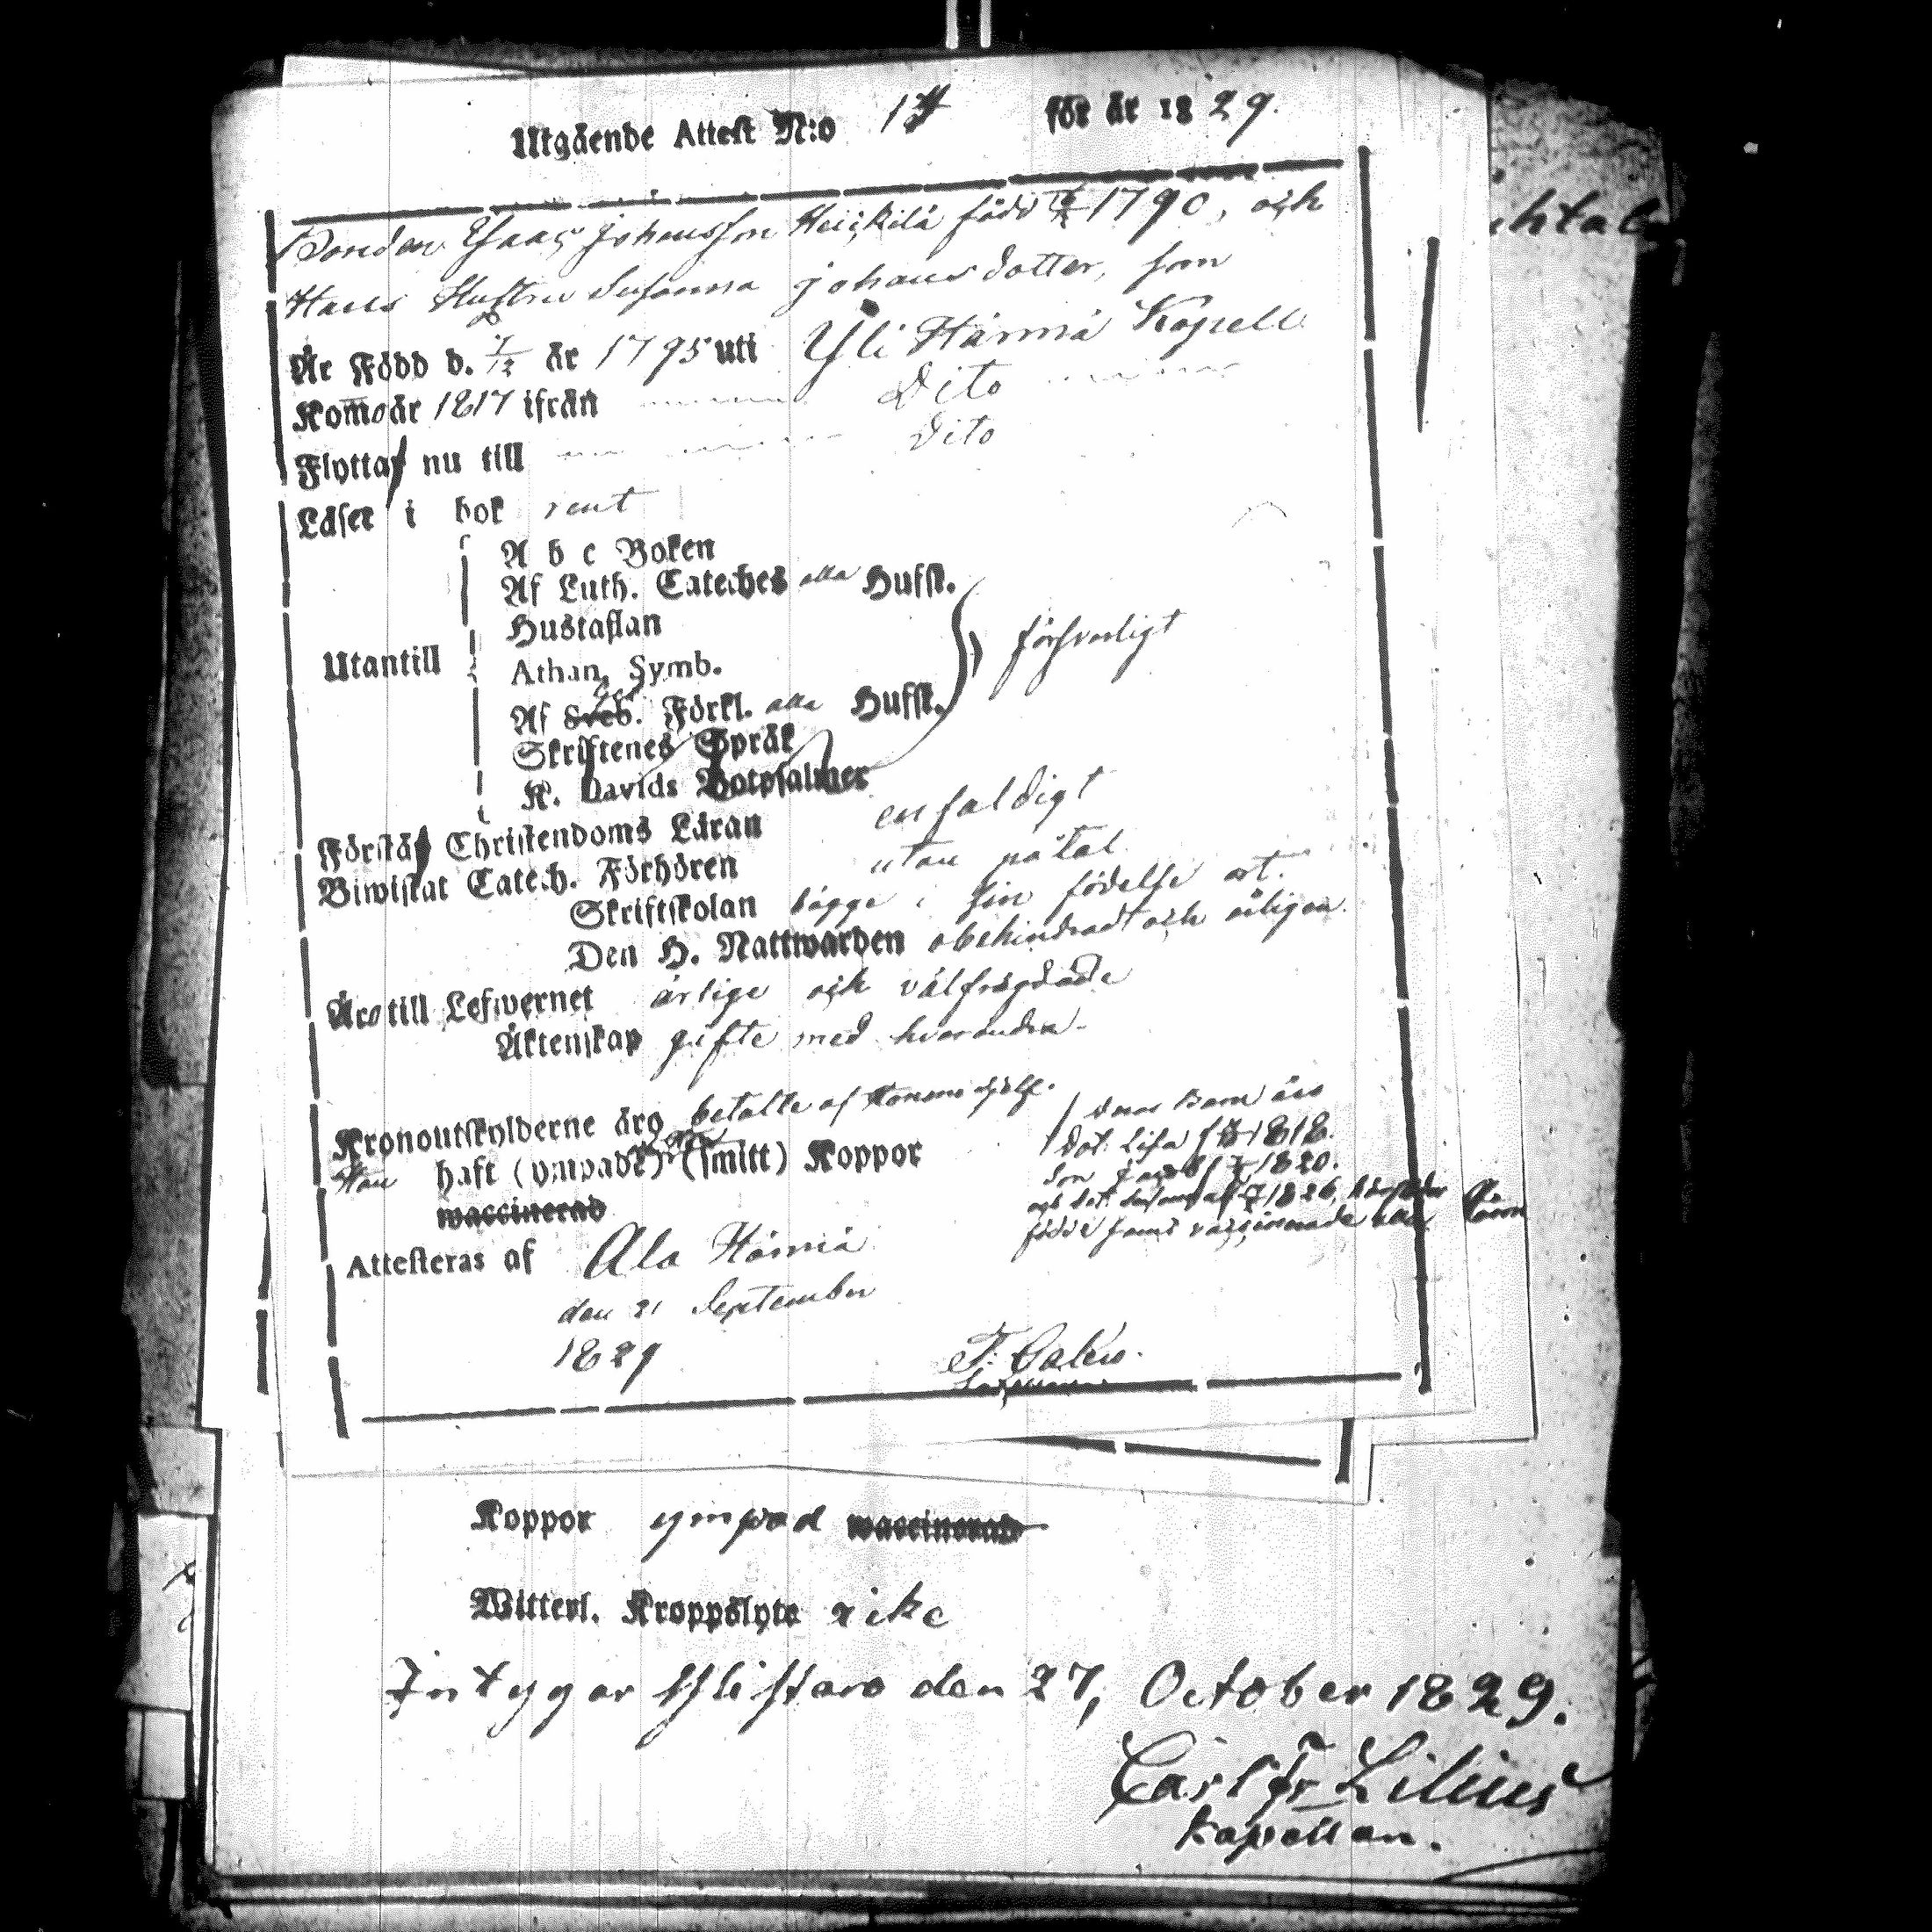 Utgående Attest N:o 14 för år 1829.
Bonden Isaac Johansson Heickilä född 1790, och
Hans Hustru Susanna Johansdotter, som
Är Född d. 7/12 år 1795 uti Yli Härmä Kapell
Komo år 1817 ifrån Dito
Flytta nu till Dito
Läser i bok rent
A b c Boken
Af Luth. Cateches alla Hufst.
Hustaflan
Utantill Athan. Symb. försvarligt
Af Sveb. Förkl. alla Hufst.
Skriftenes Språk
K. Davids Botpsalmer
Förstå Christendoms Läran enfaldigt
Biwistat Catech. Förhören utan påtal
Skriftskolan bägge i sin födelse ort.
Den H. Nattwarden obehindradt och årligen.
Äro till Lefwernet ärlige och välfrägdade
Äktenskap gifte med hvarandra.
Kronoutskylderne äro betalte af
haft (ympade) (smitt) Koppor
waccinerad
deras Barn äro
dot. Lisa f 1818.
Son Jacob f 1820.
1826,
födde samt vaccinerade
Attesteras af Ala Härmä
den 21 September
1829
Koppor ympad waccinerad
Witterl. Kroppslyte icke
Intygar Ylistaro den 27, October 1829.
Carl Fr Lilius
Kapellan.